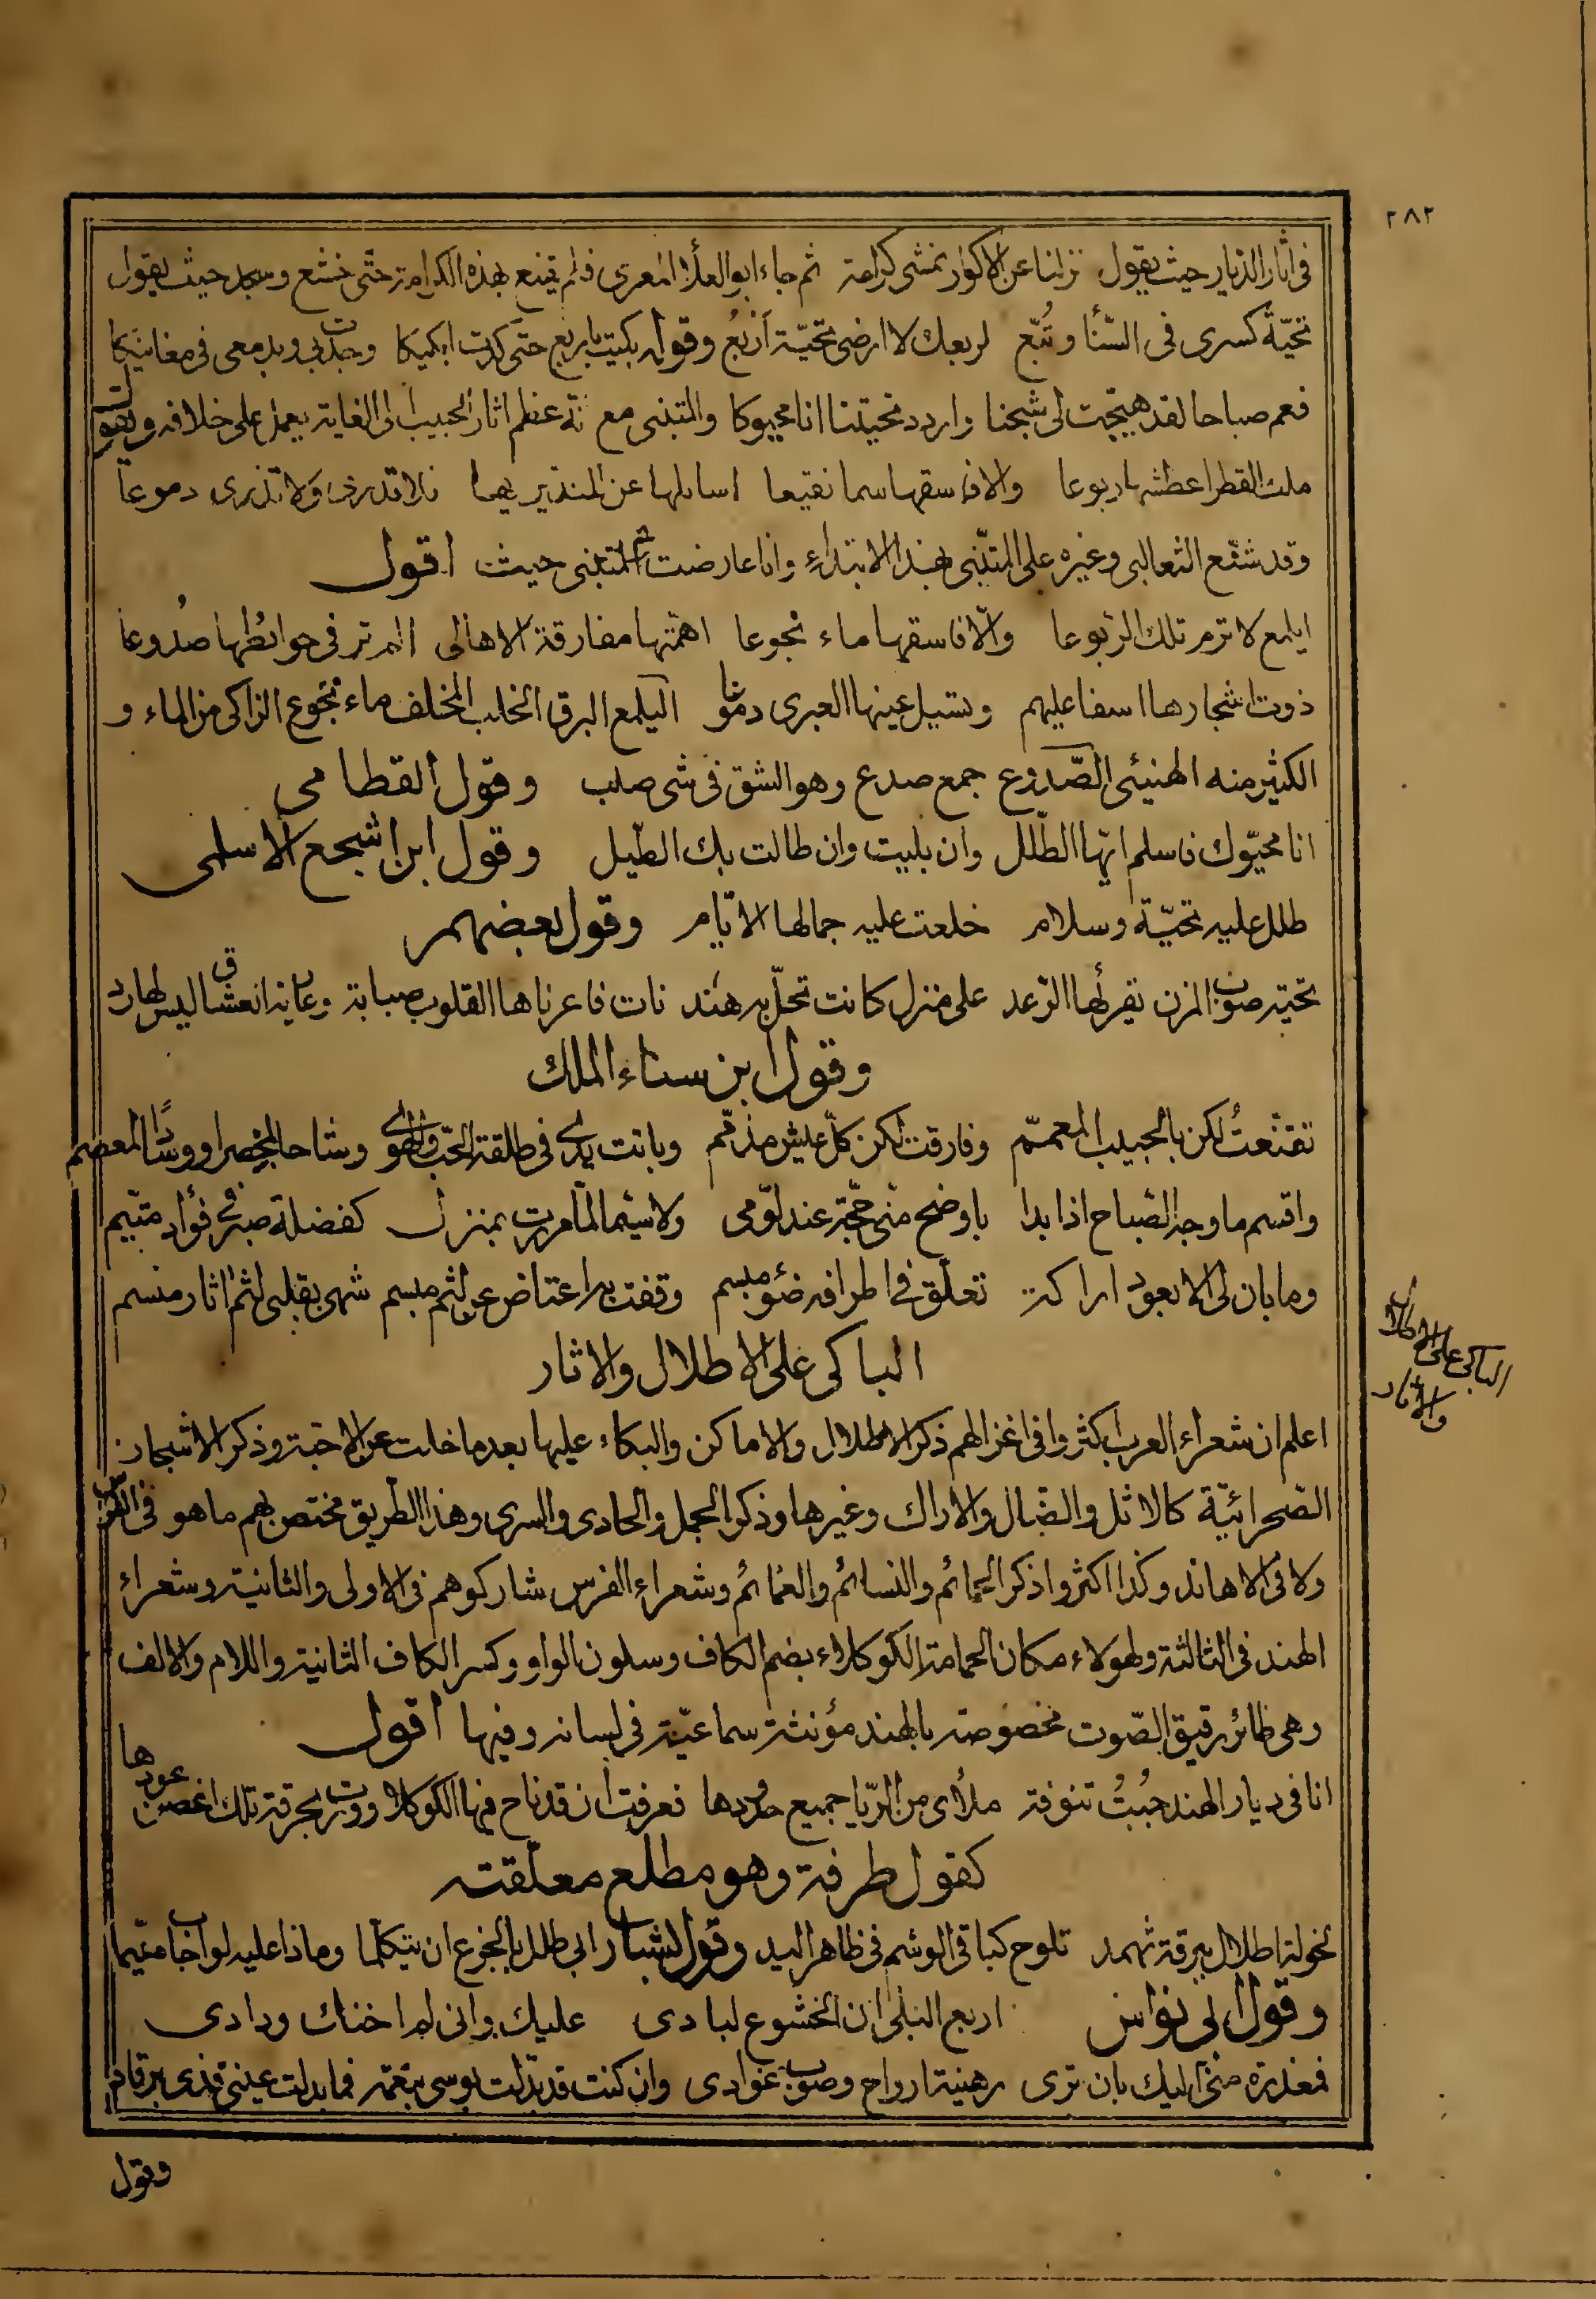 ٢٨٢
فى اثار الديار حيث يقول نزلنا عن الاكوار نمشى كرامة ثم جاء ابو العلأ المعرى فلم يقنع بهذه الكرامة حتّى خشع وسجد حيث يقول
تحيّة كسرى فى السّنأ وتُبّع لربعك لا ارضى تحيّة اَربُع وقوله بكيت ياربع حتى كدت ابكيكا وجدت بى وبدمعى فى مغانيكا
فعم صباحا لقد هيّجت لى شجنا واردد تحيتنا انا محيوكا والمتنبى مع انه عظم اثار الحبيب الى الغاية يعمل على خلافه وهو القائل
ملث القطر اعطشها ربوعا والا فاسقها سما نقيعا اسائلها عن المتديريها فلا تدرى ولا تذرى دموعا
وقد شنّع الثعالبى وغيره على المتنّبى بهذا الابتداء وانا عارضت المتنبى حيث اقول
ايلمع لا ترم تلك الرّبوعا والّا فاسقها ماء نجوعا اهمّتها مفارقة الاهالى الم تر فى حوائطها صُدُوعا
ذوت اشجارها اسفا عليهم وتسيل عينها العبرى دموعا اليلمع البرق الخلب المخلف ماء نجوع الزاكى من الماء و
الكثير منه الهنيئى الصّدوع جمع صدع وهو الشق فى شى صلب وقول القطامى
انا محيّوك فاسلم ايّها الطّلل وان بليت وان طالت بك الطّيل وقول ابن اشجع الاسلمى
طلل عليه تحيّة وسلام خلعت عليه جمالها الايّام وقول بعضهم
تحيّة صوب المزن يقرأها الرّعد على منزل كانت تحلّ به هند نات فاعرناها القلوب صبابة وعارية العشاق ليس لها رد
وقول ابن سناء الملك
تقنّعتُ لكن بالحبيب المعمّم وفارقت لكن كلّ عيش مذمّم وباتت يدى فى طاعة الحبّ والهوى وشاحا لخصر او سوارًا لمعصم
واقسم ما وجه الصّباح اذا بدا باوضح منّى حجّة عند لوّمى ولا سيّما لمّا مررت بمنزل كفضلة صبر فى فؤاد متيّم
وما بان لى الا بعود اراكة تعلّق فى اطرافه ضوء مبسم وقفت به اعتاض عن لثم مبسم شهى بقلبى لثم اثار منسم
الباكى على الاطلال والاثار
الباكى على الاطلال
والآثار
اعلم ان شعراء العرب اكثروا فى اغزالهم ذكر الاطلال والاماكن والبكاء عليها بعد ما خلت عن الاحبّة وذكر الاشجار
الصّحرائيّة كالاثل والضّال والاراك وغيرها وذكر الجمل والحادى والسرى وهذا الطريق مختص بهم ما هو فى الفرس
ولا فى الاهاند وكذا اكثروا ذكر الحمائم والنسائم والغمائم وشعراء الفرس شاركوهم فى الاولى والثانية وشعراء
الهند فى الثالثة ولهولاء مكان الحمامة الكوكلاء بضم الكاف وسكون الواو وكسر الكاف الثانية واللام والالف
وهى طائر رقيق الصّوت مخصوصة بالهند مؤنثة سماعيّة فى لسانه وفيها اقول
انا فى ديار الهند جُبتُ تنوفة ملأى من الريّا جميع حدودها فعرفت ان قد ناح فيها الكوكلا وورت بحرقة تلك اغصن عودها
كقول طرفة وهو مطلع معلّقته
لخولة اطلال ببرقة ثهمد تلوح كباقى الوشم فى ظاهر اليد وقول بشار ابى طلل بالجزع ان يتكلّما وماذا عليه لو اجاب متيّما
وقول ابى نواس اربع البلى ان الخشوع لبادى عليك وانى لم اخنك ودادى
فمعذرة منّى اليك بان ترى رهينة ارواح وصوب غوادى وان كنت قد بدّلت بوسى بنعمة فما بدلت عينى قذى برقاد
وقول